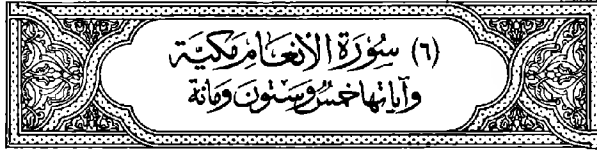 (٦) سُورَة الأنعَام مَكيَّة
وَآيَاتهَا خمسٌ وَستونَ وَمائة